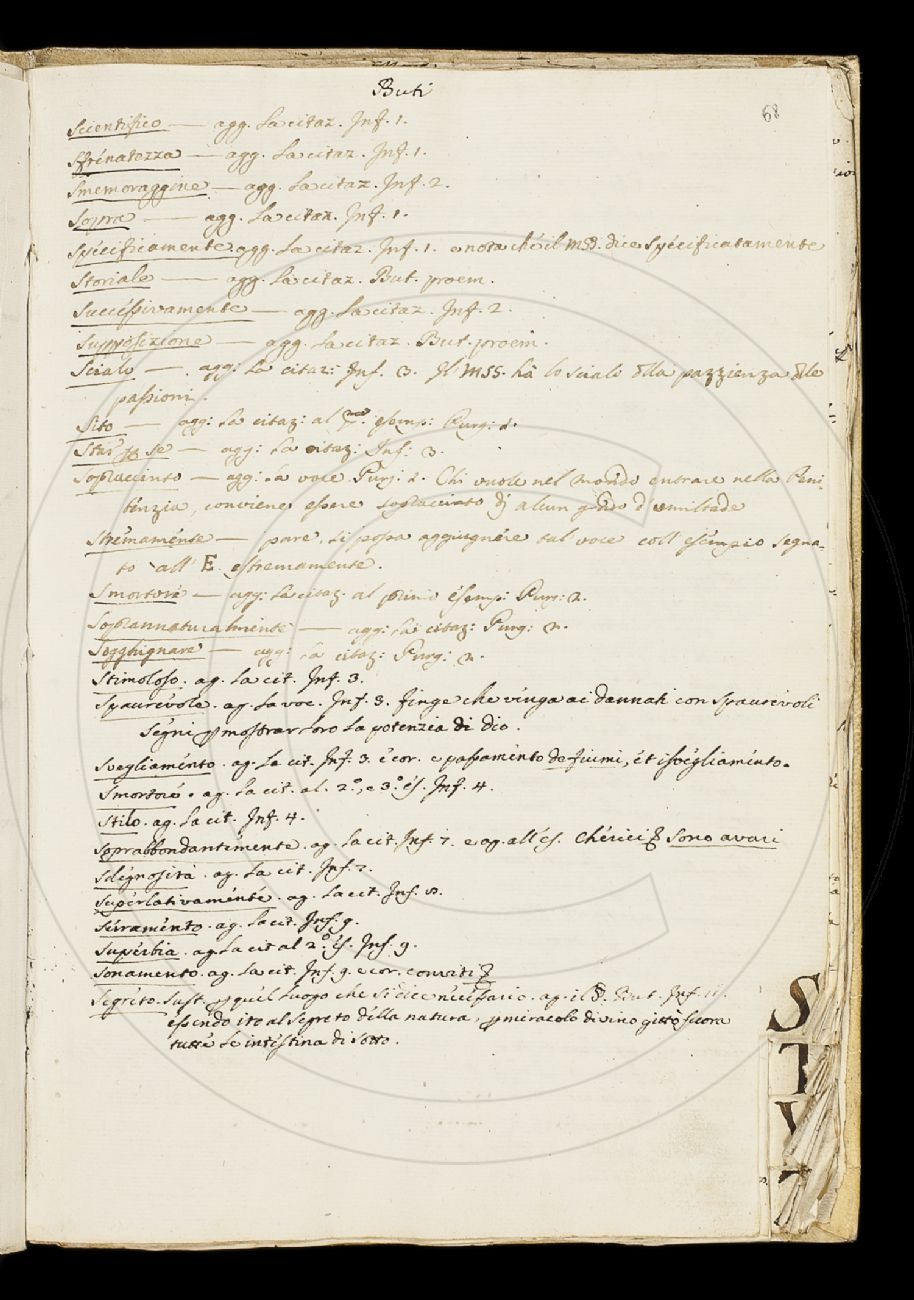 Buti
68
Scientifico — agg. la citaz. Inf. 1.
Sfrenatezza — agg. la citaz. Inf. 1.
Smemoraggine — agg. la citaz. Inf. 2.
Sopra — agg. la citaz. Inf. 1.
Specificamente agg. la citaz. Inf. 1. e nota che il MSS. dice Specificatamente
Storiale — agg. la citaz. But. proem.
Successivamente — agg. la citaz. Inf. 2.
Supposizione — agg. la citaz. But. proem.
Scialo — agg: la citaz: Inf. 3. Il MSS. hà lo scialo dlla pazzienza dlle
passioni.
Sito — agg: la citaz: al esemp: Purg: 1.
Star se — agg: la citaz: Inf: 3.
Sopraccinto — agg: la voce Purg: 1. Chi vuole nel mondo entrare nella Peni-
tenzia, conviene essere sopraccinto di alcun grado d' umiltade
Stremamente — pare, si possa aggiugnére tal voce coll' esempio segna-
to all' E. estremamente.
Smortore — agg: la citaz: al primo esemp: Purg: 2.
Soprannaturalmente — agg: la citaz: Purg: 2.
Sogghignare — agg: la citaz: Purg: 2.
Stimoloso. ag. la cit. Inf. 3.
Spaurévole. ag. la voc. Inf. 3. finge che vénga ai dannati con spaurévoli
segni p mostrar loro la potenzia di dio.
Svegliaménto. ag. la cit. Inf. 3. é cor. e passaménto de fiumi, ét isvégliaménto.
Smortoré. ag. la cit. al. 2.º, e 3.º és. Inf. 4.
Stilo. ag. la cit. Inf. 4.
Soprabbondantemente. ag. la cit. Inf. 7. e ag. all' és. Chérici & sono avari
Sdégnosità. ag. la cit. Inf. 7.
Supérlativaménté. ag. la cit. Inf. 8.
Sérraménto. ag. la cit. Inf. 9.
Supérbia. ag. la cit al 2.º és. Inf. 9.
Sonamento. ag. la cit. Inf. 9. e cor. convati &
Segréto. Sust. p quél luogo che si dice nécéssario. ag. il § But. Inf. 11.
esséndo ito al segreto délla natura, p miracolo divino gittò fuora
tutté lé intéstina di sotto.
S
T
V
Z